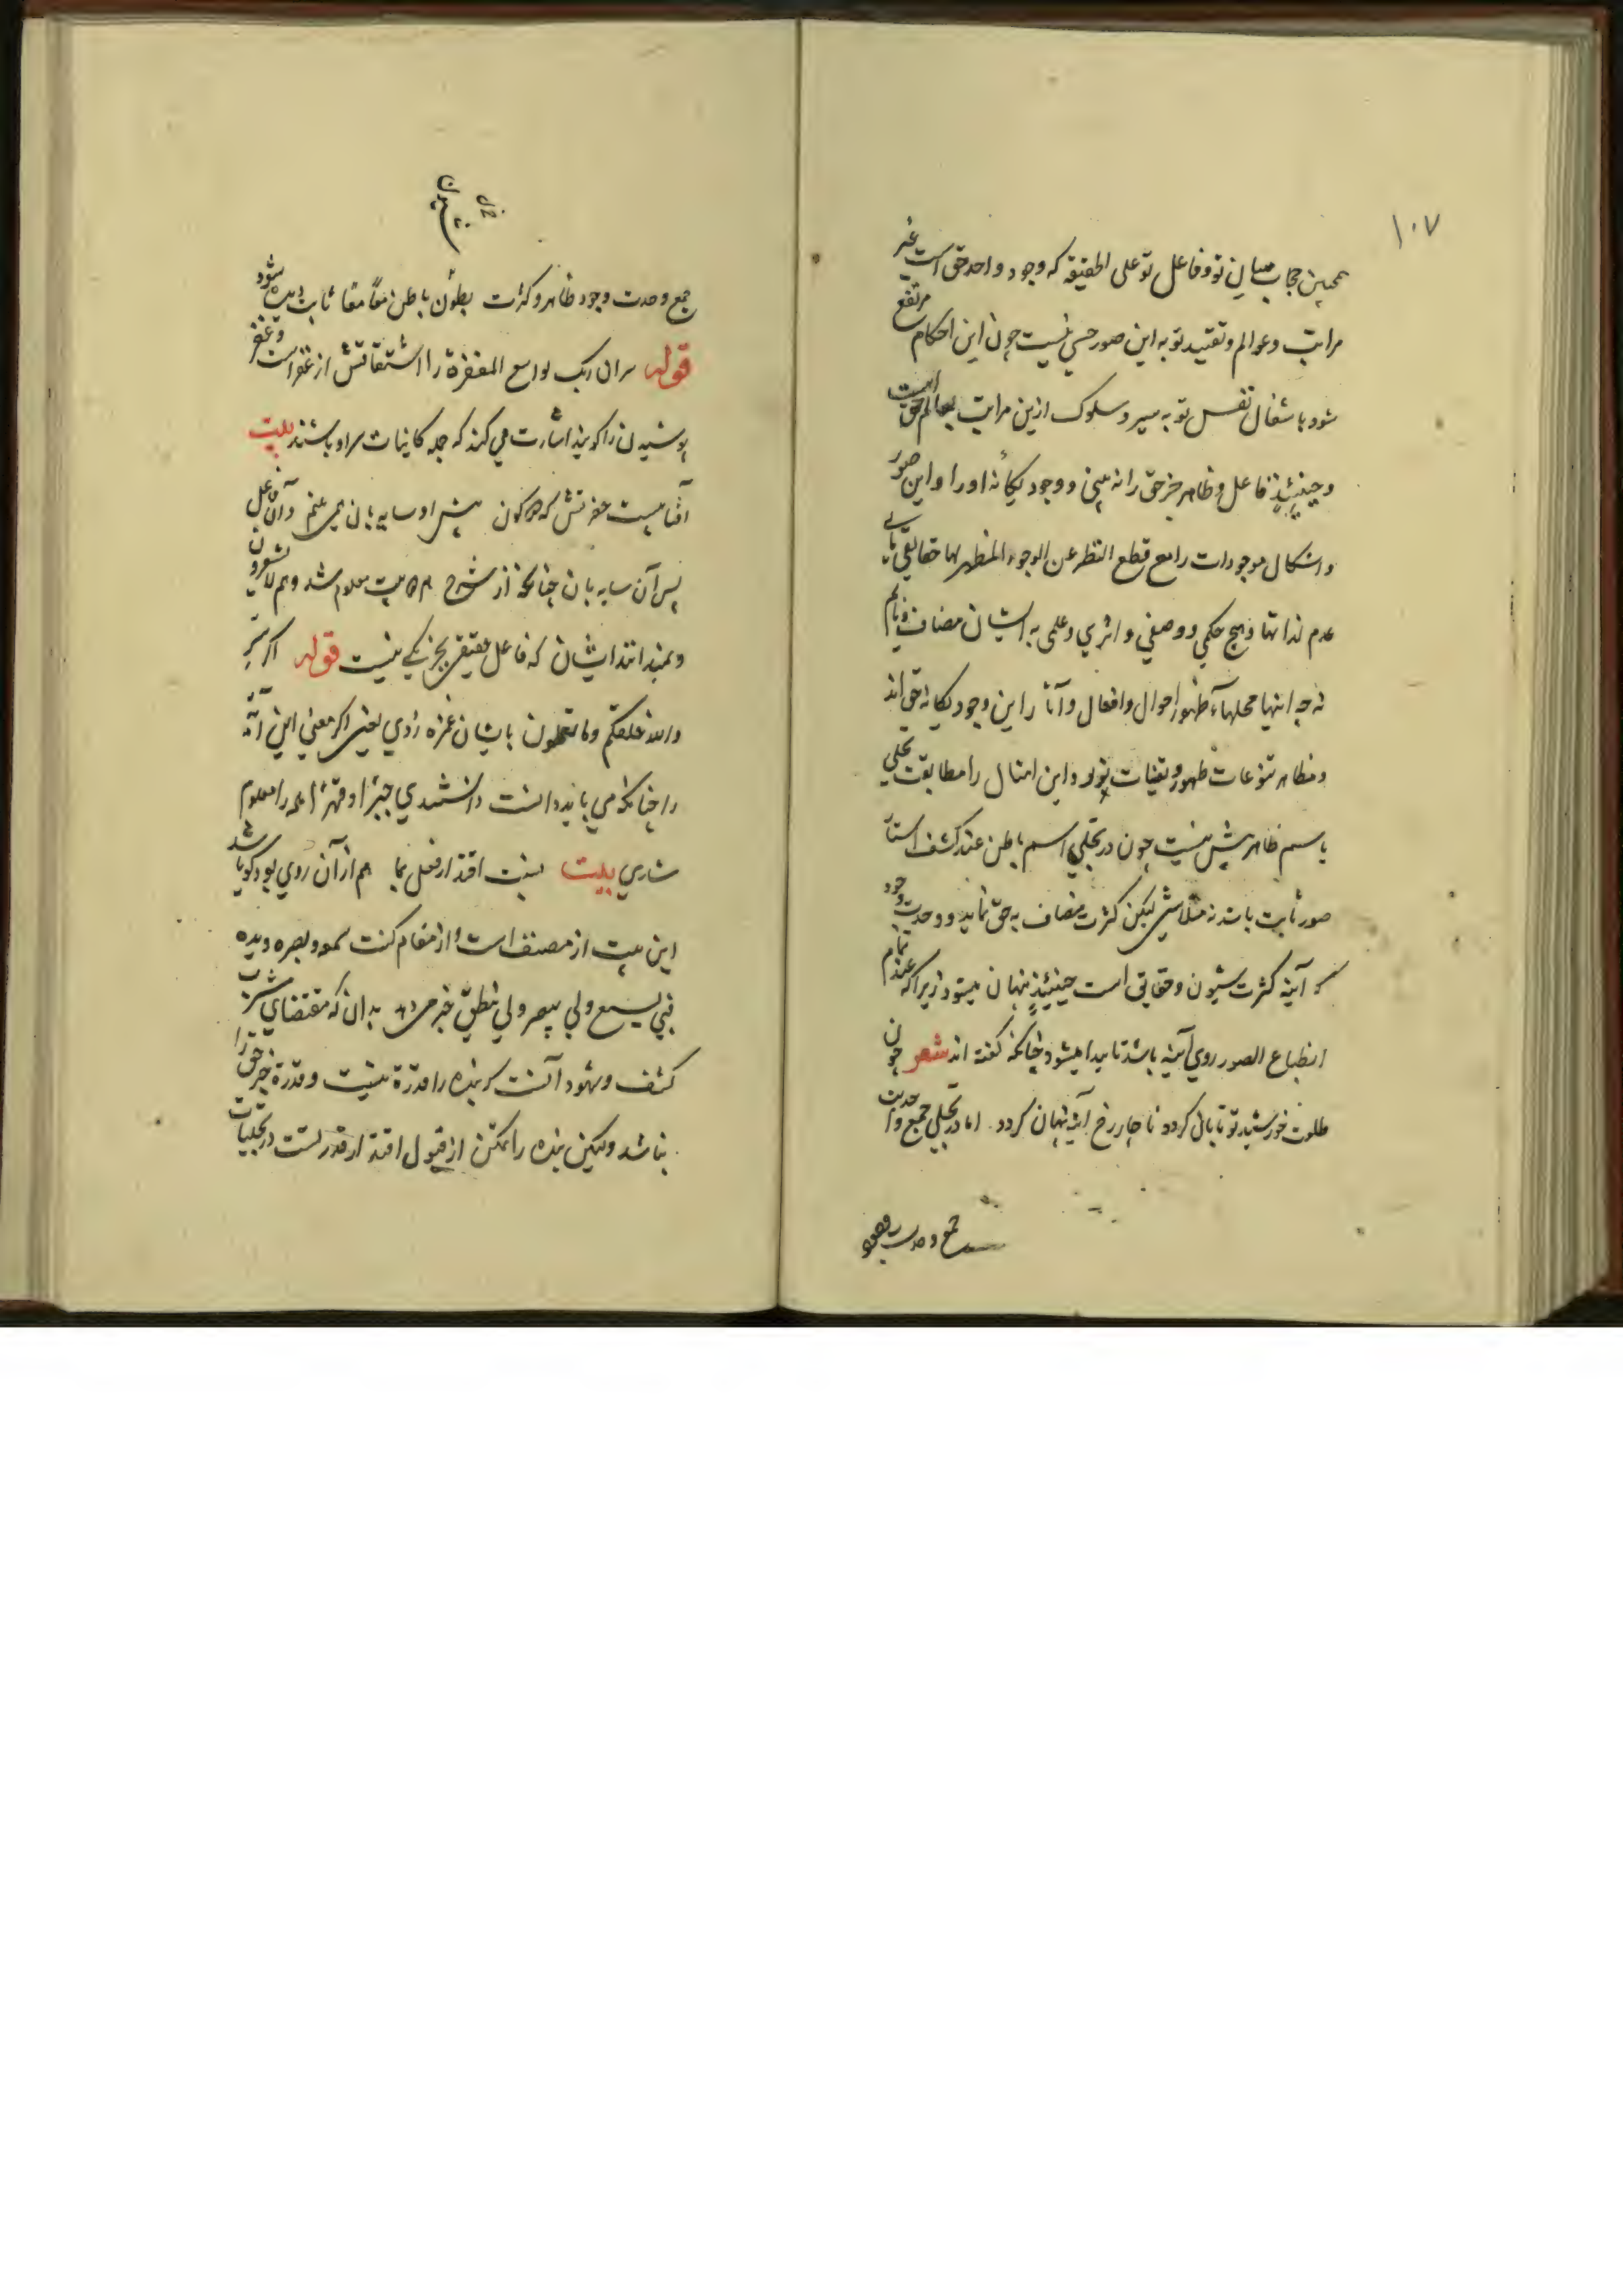 ١٠٧
همچنین حجاب میان تو و فاعل تو علی الحقیقه که وجود واحد حق است غیر
مراتب و عوالم و تقیید تو به این صور حسی نیست چون این احکام مرتفع
شود باشغال نفس تو به سیر و سلوک ازین مراتب بعالم حق است
و حینئذٍ فاعل و ظاهر جز حق را نه بینی و وجود یگانه او را و این صور
و اشکال موجودات را مع قطع النظر عن الوجود المظهر لها حقایقی یابی
عدم لذاتها و هیچ حکمی و وصفی و اثری و علمی به ایشان مضاف
نه چه اینها محلهاء ظهور احوال و افعال و آثار این وجود یگانه حق اند
و مظاهر تنوعات ظهور و تعینات او و این امثال را مطابقت تجلی
باسم ظاهر بیش نیست چون در تجلی اسم باطن عند کشف استار
صور ثابت باشد نه متلاشی لیکن کثرت مضاف به حق نماید و وحدت وجود
که آینه کثرت شیون و حقایق است حینئذٍ پنهان میشود زیرا که عند تمام
انطباع الصور روی آینه باشد ناپیدا میشود چنانکه گفته اند شعر چون
طلعت خورشید تو تابان گردد ناچار رخ آینه پنهان گردد اما در تجلی جمع واحدیت
جمع و حدت وجود
جمع وحدت وجود ظاهر و کثرت بطون باطن معًا معًا ثابت دیده شود
قوله سران ربک لواسع المغفرة را اشتقاقش از غفر است و غفر
پوشیدن را گویند اشارت می کند که جمله کاینات سر او باشند بیت
آفتابیست حضرتش که دو کون پیش او سایه بان همی بینم و آن فاعل
پس آن سایه بان چنانکه از شرح این بیت معلوم شد و هم لا یشعرون
و نمیدانند ایشان که فاعل حقیقی بجز یکی نیست قوله اگر سر
والله خلقکم وما تعملون بایشان غمزه زدی یعنی اگر معنی این آیه
را چنانکه می باید دانست دانستندی جبرًا و قهرًا همه را معلوم
شدی بیت نسبت اقتدار فعل بما هم از آن روی بود کوما شد
این بیت از مصنف است و از مقام کنت سمعه و بصره و یده
فبی یسمع و بی یبصر و بی ینطق خبر می دهد بدان که مقتضای مشرب
کشف و شهود آنست که بنده را قدرة نیست و قدرة جز حق را
نباشد ولیکن بنده را تمکن از قبول اقتدار قدرتست در تجلیات